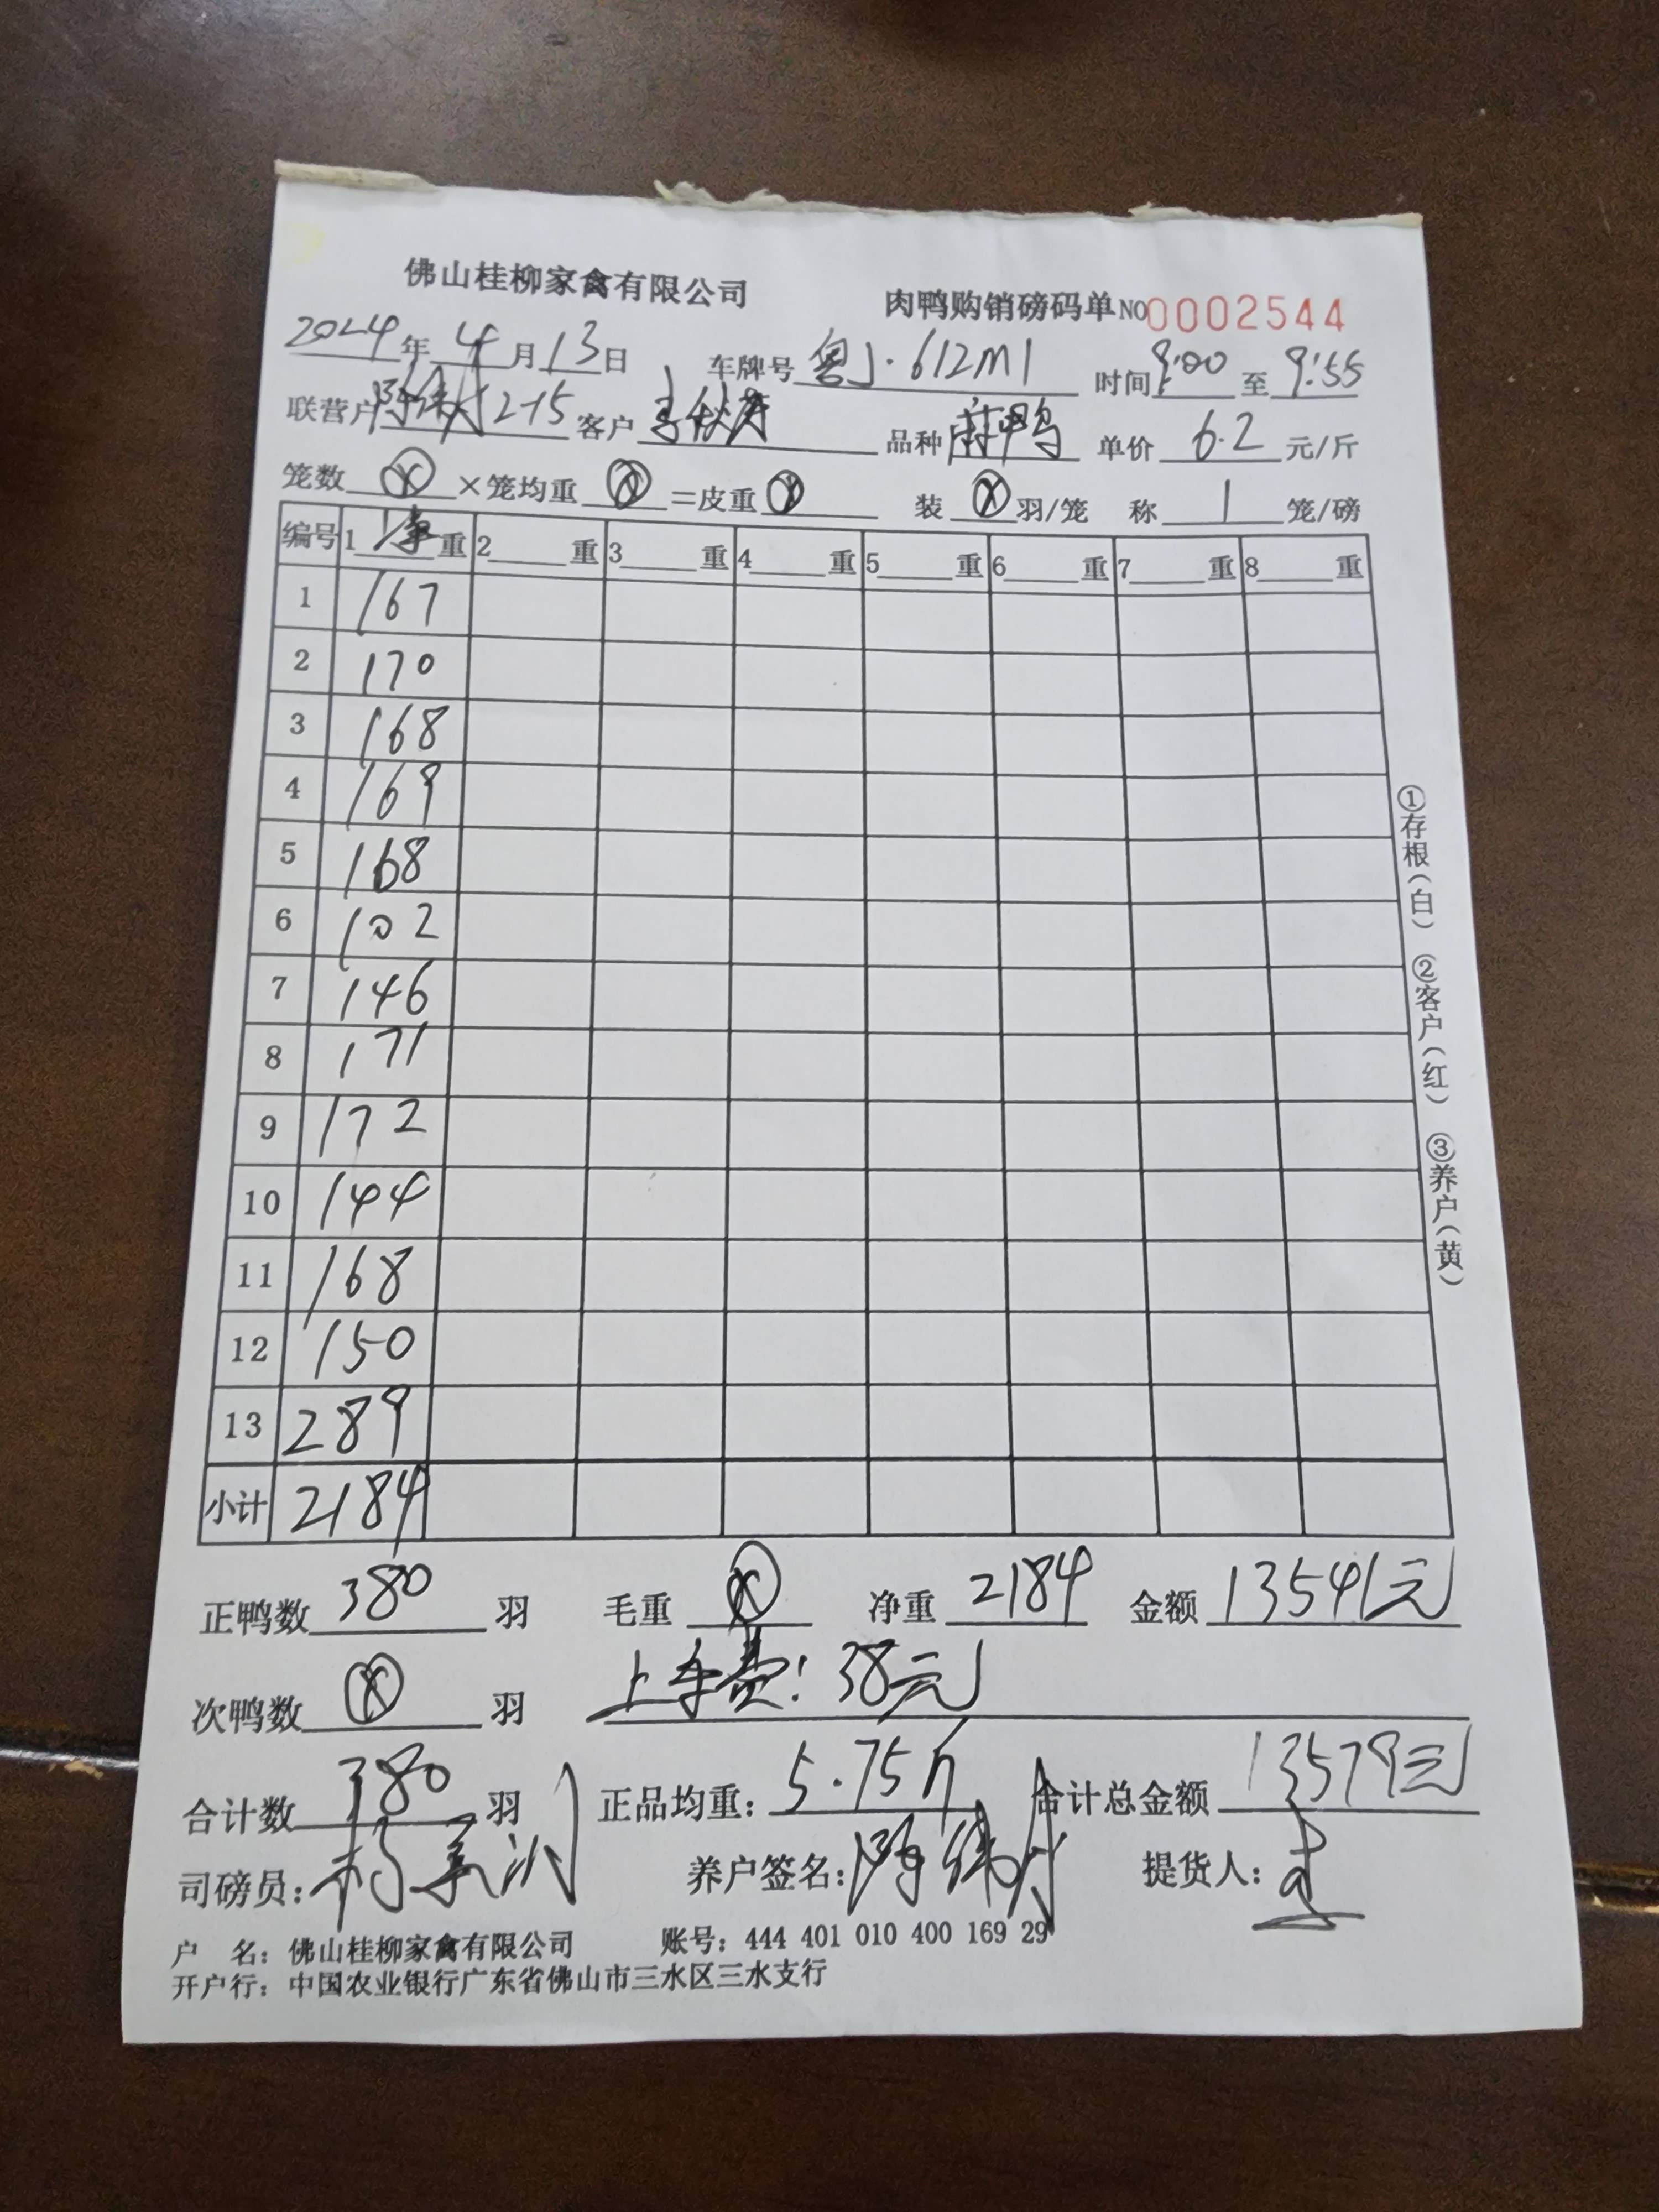 佛山桂柳家禽有限公司 肉鸭购销磅码单 NO 0002544
2024年 4月13日 车牌号 粤J·612M1 时间 9:00 至 9:55
联营户 2-15 客户 品种 麻鸭 单价 6.2 元/斤
笼数 ⊗ ×笼均重 ⊗ =皮重 ⊗ 装 ⊗ 羽/笼 称 1 笼/磅
编号 1 净 重 2 重 3 重 4 重 5 重 6 重 7 重 8 重
1 167
2 170
3 168
4 169
5 168
6 102
7 146
8 171
9 172
10 144
11 168
12 150
13 289
小计 2184
正鸭数 380 羽 毛重 ⊗ 净重 2184 金额 13541元
次鸭数 ⊗ 羽 上车费：38元
合计数 380 羽 正品均重： 5.75斤 合计总金额 13579元
司磅员： 养户签名： 提货人：
户 名：佛山桂柳家禽有限公司 账号：444 401 010 400 169 29
开户行：中国农业银行广东省佛山市三水区三水支行
①存根（白） ②客户（红） ③养户（黄）